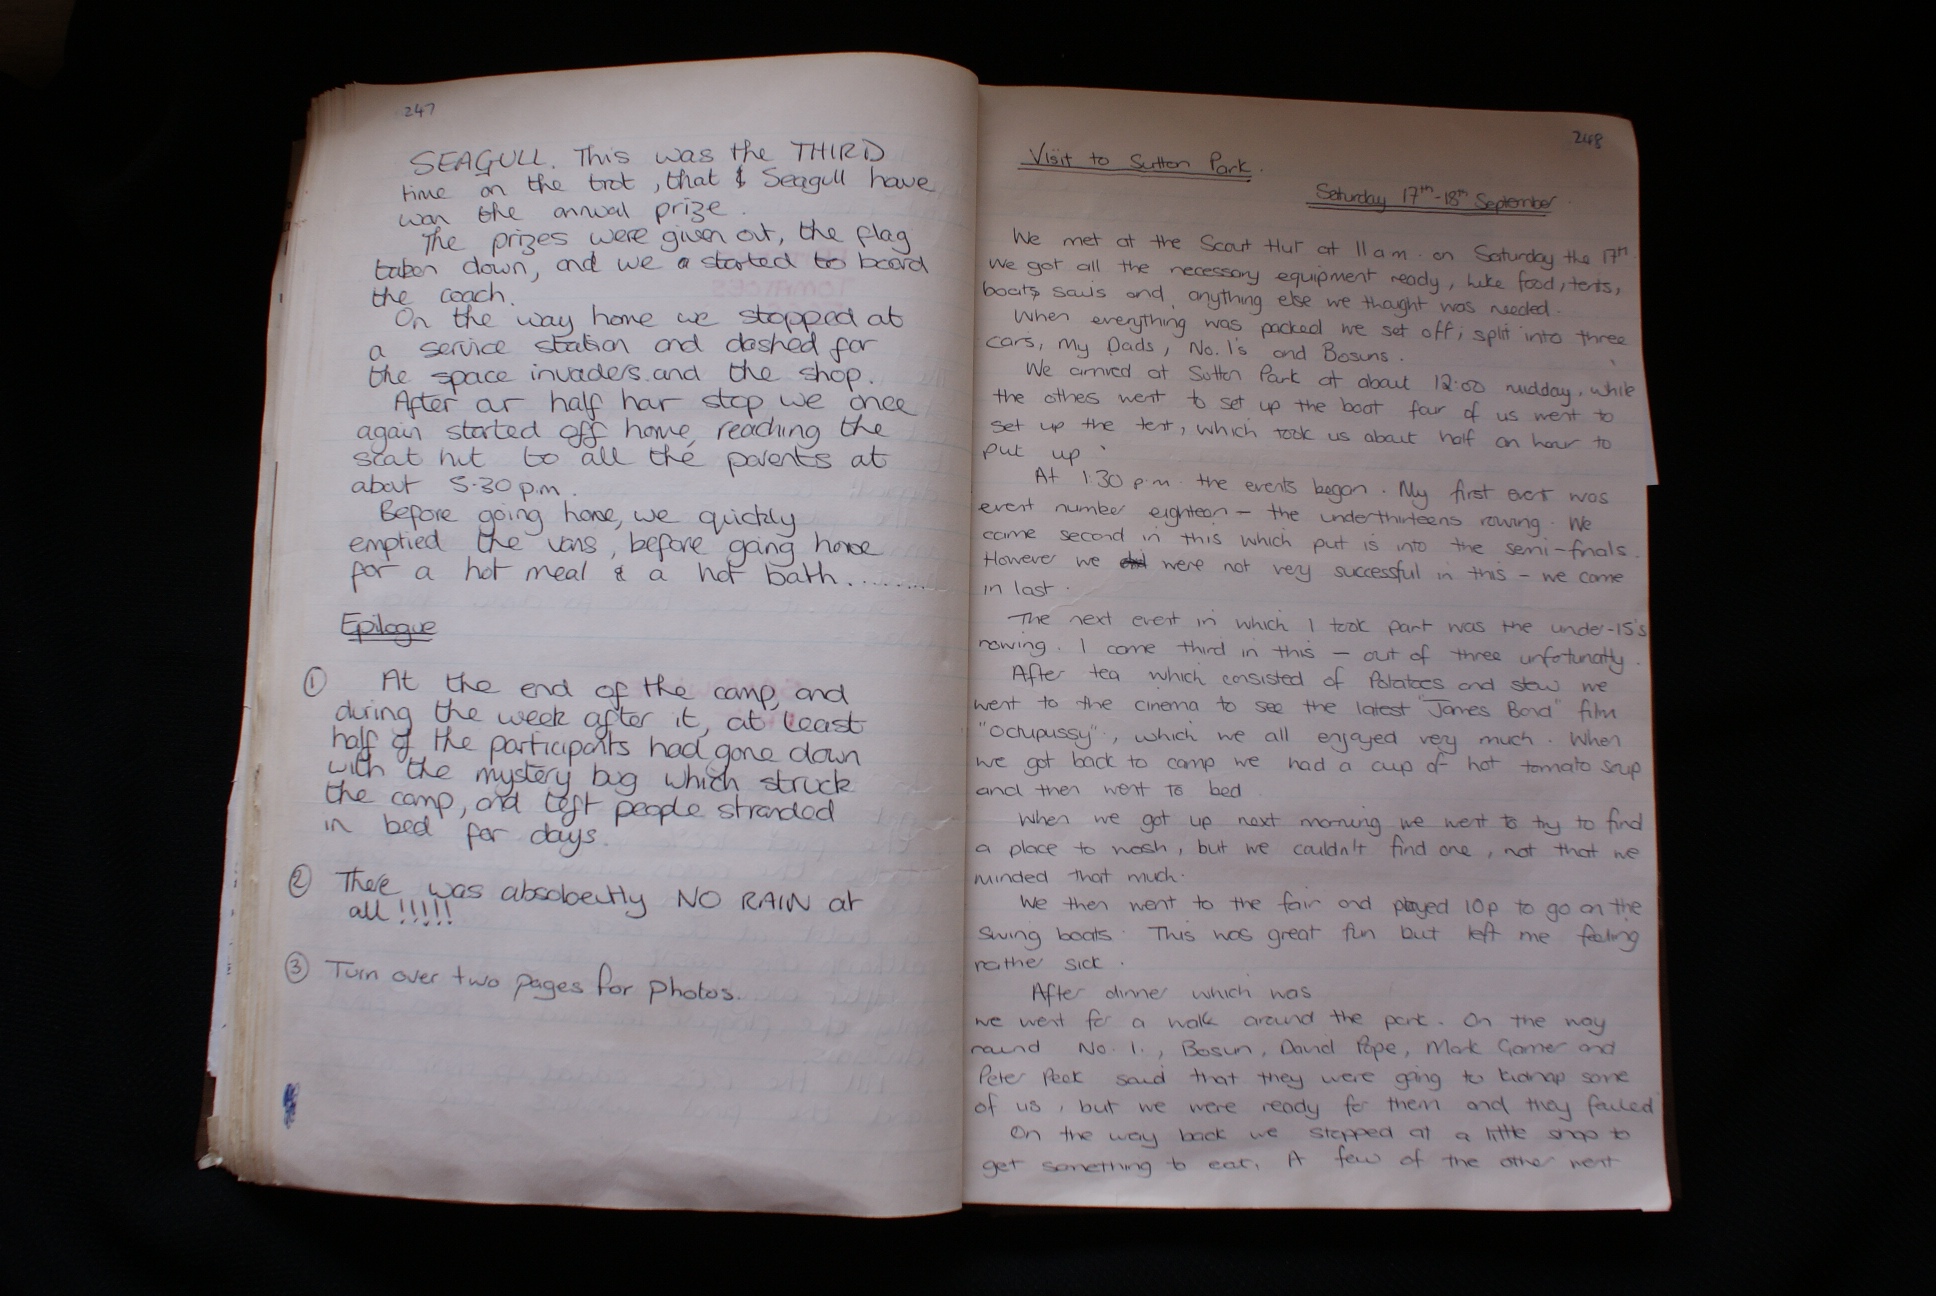 247
SEAGULL. This was the THIRD
time on the trot, that & Seagull have
won the annual prize.
The prizes were given out, the flag
taken down, and we a started to board
the coach.
On the way home we stopped at
a service station and dashed for
the space invaders and the shop.
After our half hour stop we once
again started off home, reaching the
scout hut to all the parents at
about 5.30 p.m.
Before going home, we quickly
emptied the vans, before going home
for a hot meal & a hot bath..........
Epilogue
① At the end of the camp, and
during the week after it, at least
half of the participants had gone down
with the mystery bug which struck
the camp, and left people stranded
in bed for days.
② There was absoloeutly NO RAIN at
all!!!!!
③ Turn over two pages for photos.
248
Visit to Sutton Park.
Saturday 17th-18th September.
We met at the Scout Hut at 11 am. on Saturday the 17th.
We got all the necessary equipment ready, like food, tents,
boats, sails and anything else we thought was needed.
When everything was packed we set off; split into three
cars, my Dads, No. 1's and Bosuns.
We arrived at Sutton Park at about 12.00 midday, while
the othes went to set up the boat four of us went to
set up the tent, which took us about half an hour to
put up.
At 1.30 p.m. the events began. My first evet was
event number eighteen - the underthirteens rowing. We
came second in this which put is into the semi-finals.
However we did were not very successful in this - we came
in last.
The next event in which I took part was the under-15's
rowing. I came third in this - out of three unfotunatly.
After tea which consisted of Potatoes and stew we
went to the cinema to see the latest "James Bond" film
"Octupussy", which we all enjoyed very much. When
we got back to camp we had a cup of hot tomato soup
and then went to bed.
When we got up next morning we went to try to find
a place to wash, but we couldn't find one, not that we
minded that much.
We then went to the fair and played 10p to go on the
Swing boats. This was great fun but left me feeling
rather sick.
After dinner which was
we went for a walk around the park. On the way
round No. 1., Bosun, David Pope, Mark Garner and
Peter Peck said that they were going to kidnap some
of us, but we were ready for them and they failed
On the way back we stopped at a little shop to
get something to eat. A few of the other went